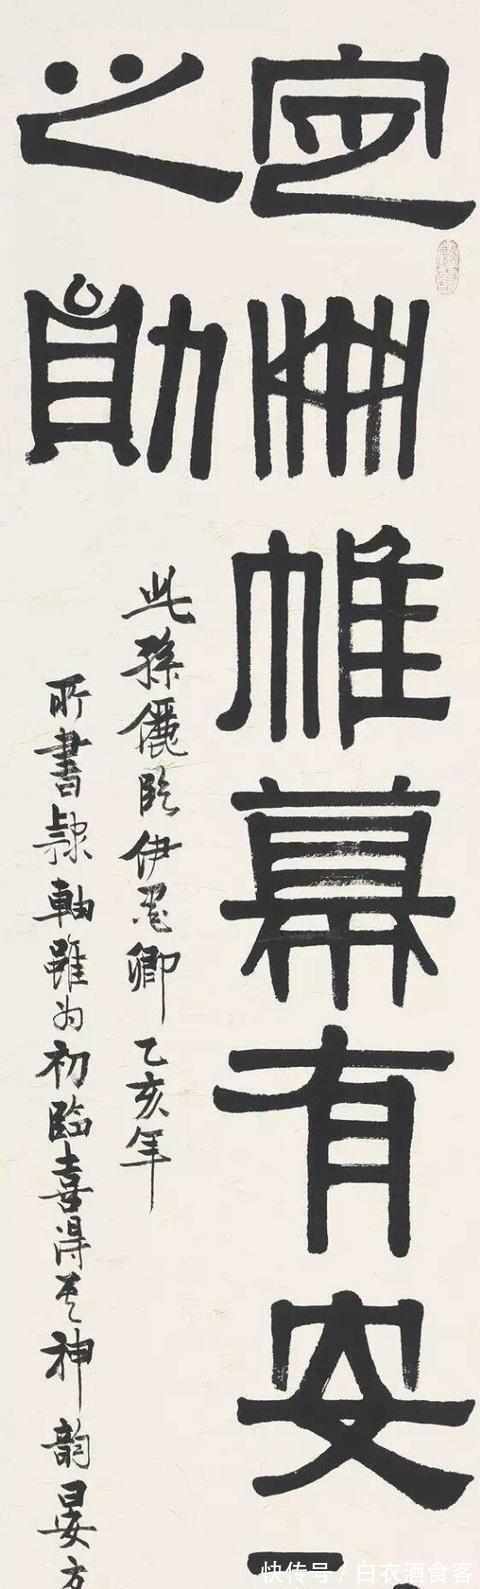 定册帷幕有安
之勛
此孫儷临伊墨卿乙亥年
所書隸軸雖为初臨喜得其神韵晏方
快传号/白衣酒食客